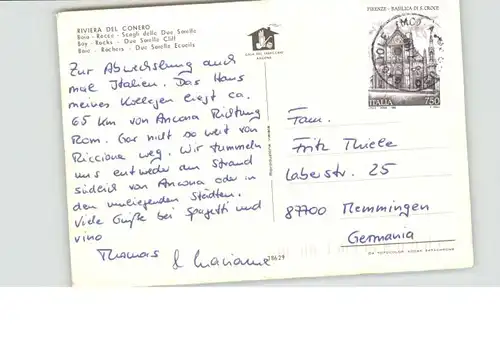 RIVIERA DEL CONERO
Baia - Rocce - Scogli delle Due Sorelle
Bay - Rocks - Due Sorelle Cliff
Baie - Rochers - Due Sorelle Ecueils
Zur Abwechslung auch
mal Italien. Das Haus
meines Kollegen liegt ca.
65 km von Ancona Richtung
Rom. Gar nicht so weit von
Riccione weg. Wir tummeln
uns entweder am Strand
südlich von Ancona oder in
den umliegenden Städten.
Viele Grüße bei Spagetti und
vino
Thomas & Mariane
ANCONA
38629
FIRENZE - BASILICA DI S. CROCE
ITALIA 750
Fam.
Fritz Thiele
Laberstr. 25
87700 Memmingen
Germania